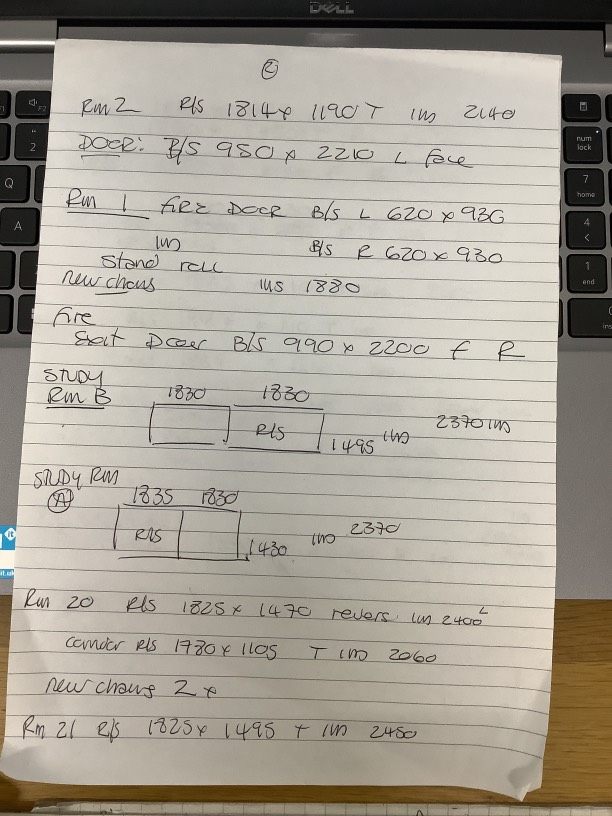 DELL
②
Rm 2 R/S 1814 x 1190 T 1m 2140
DOOR: B/S 950 x 2210 L face
Rm 1 FIRE DOOR B/S L 620 x 930
1m B/S R 620 x 930
Stand roll
new chains 1m 1880
fire
Exit Door B/S 990 x 2200 f R
STUDY
Rm B 1830 1830
R/S 1495 1m 2370 1m
STUDY RM
Ⓐ 1835 1830
R/S 1430 1m 2370
Rm 20 R/S 1825 x 1470 revers. 1m 2400 L
corridor R/S 1780 x 1105 T 1m 2060
new chains 2 x
Rm 21 R/S 1825 x 1495 T 1m 2450
F2
2
Q
A
num
lock
7
home
4
<
1
end
ins
it
it.uk